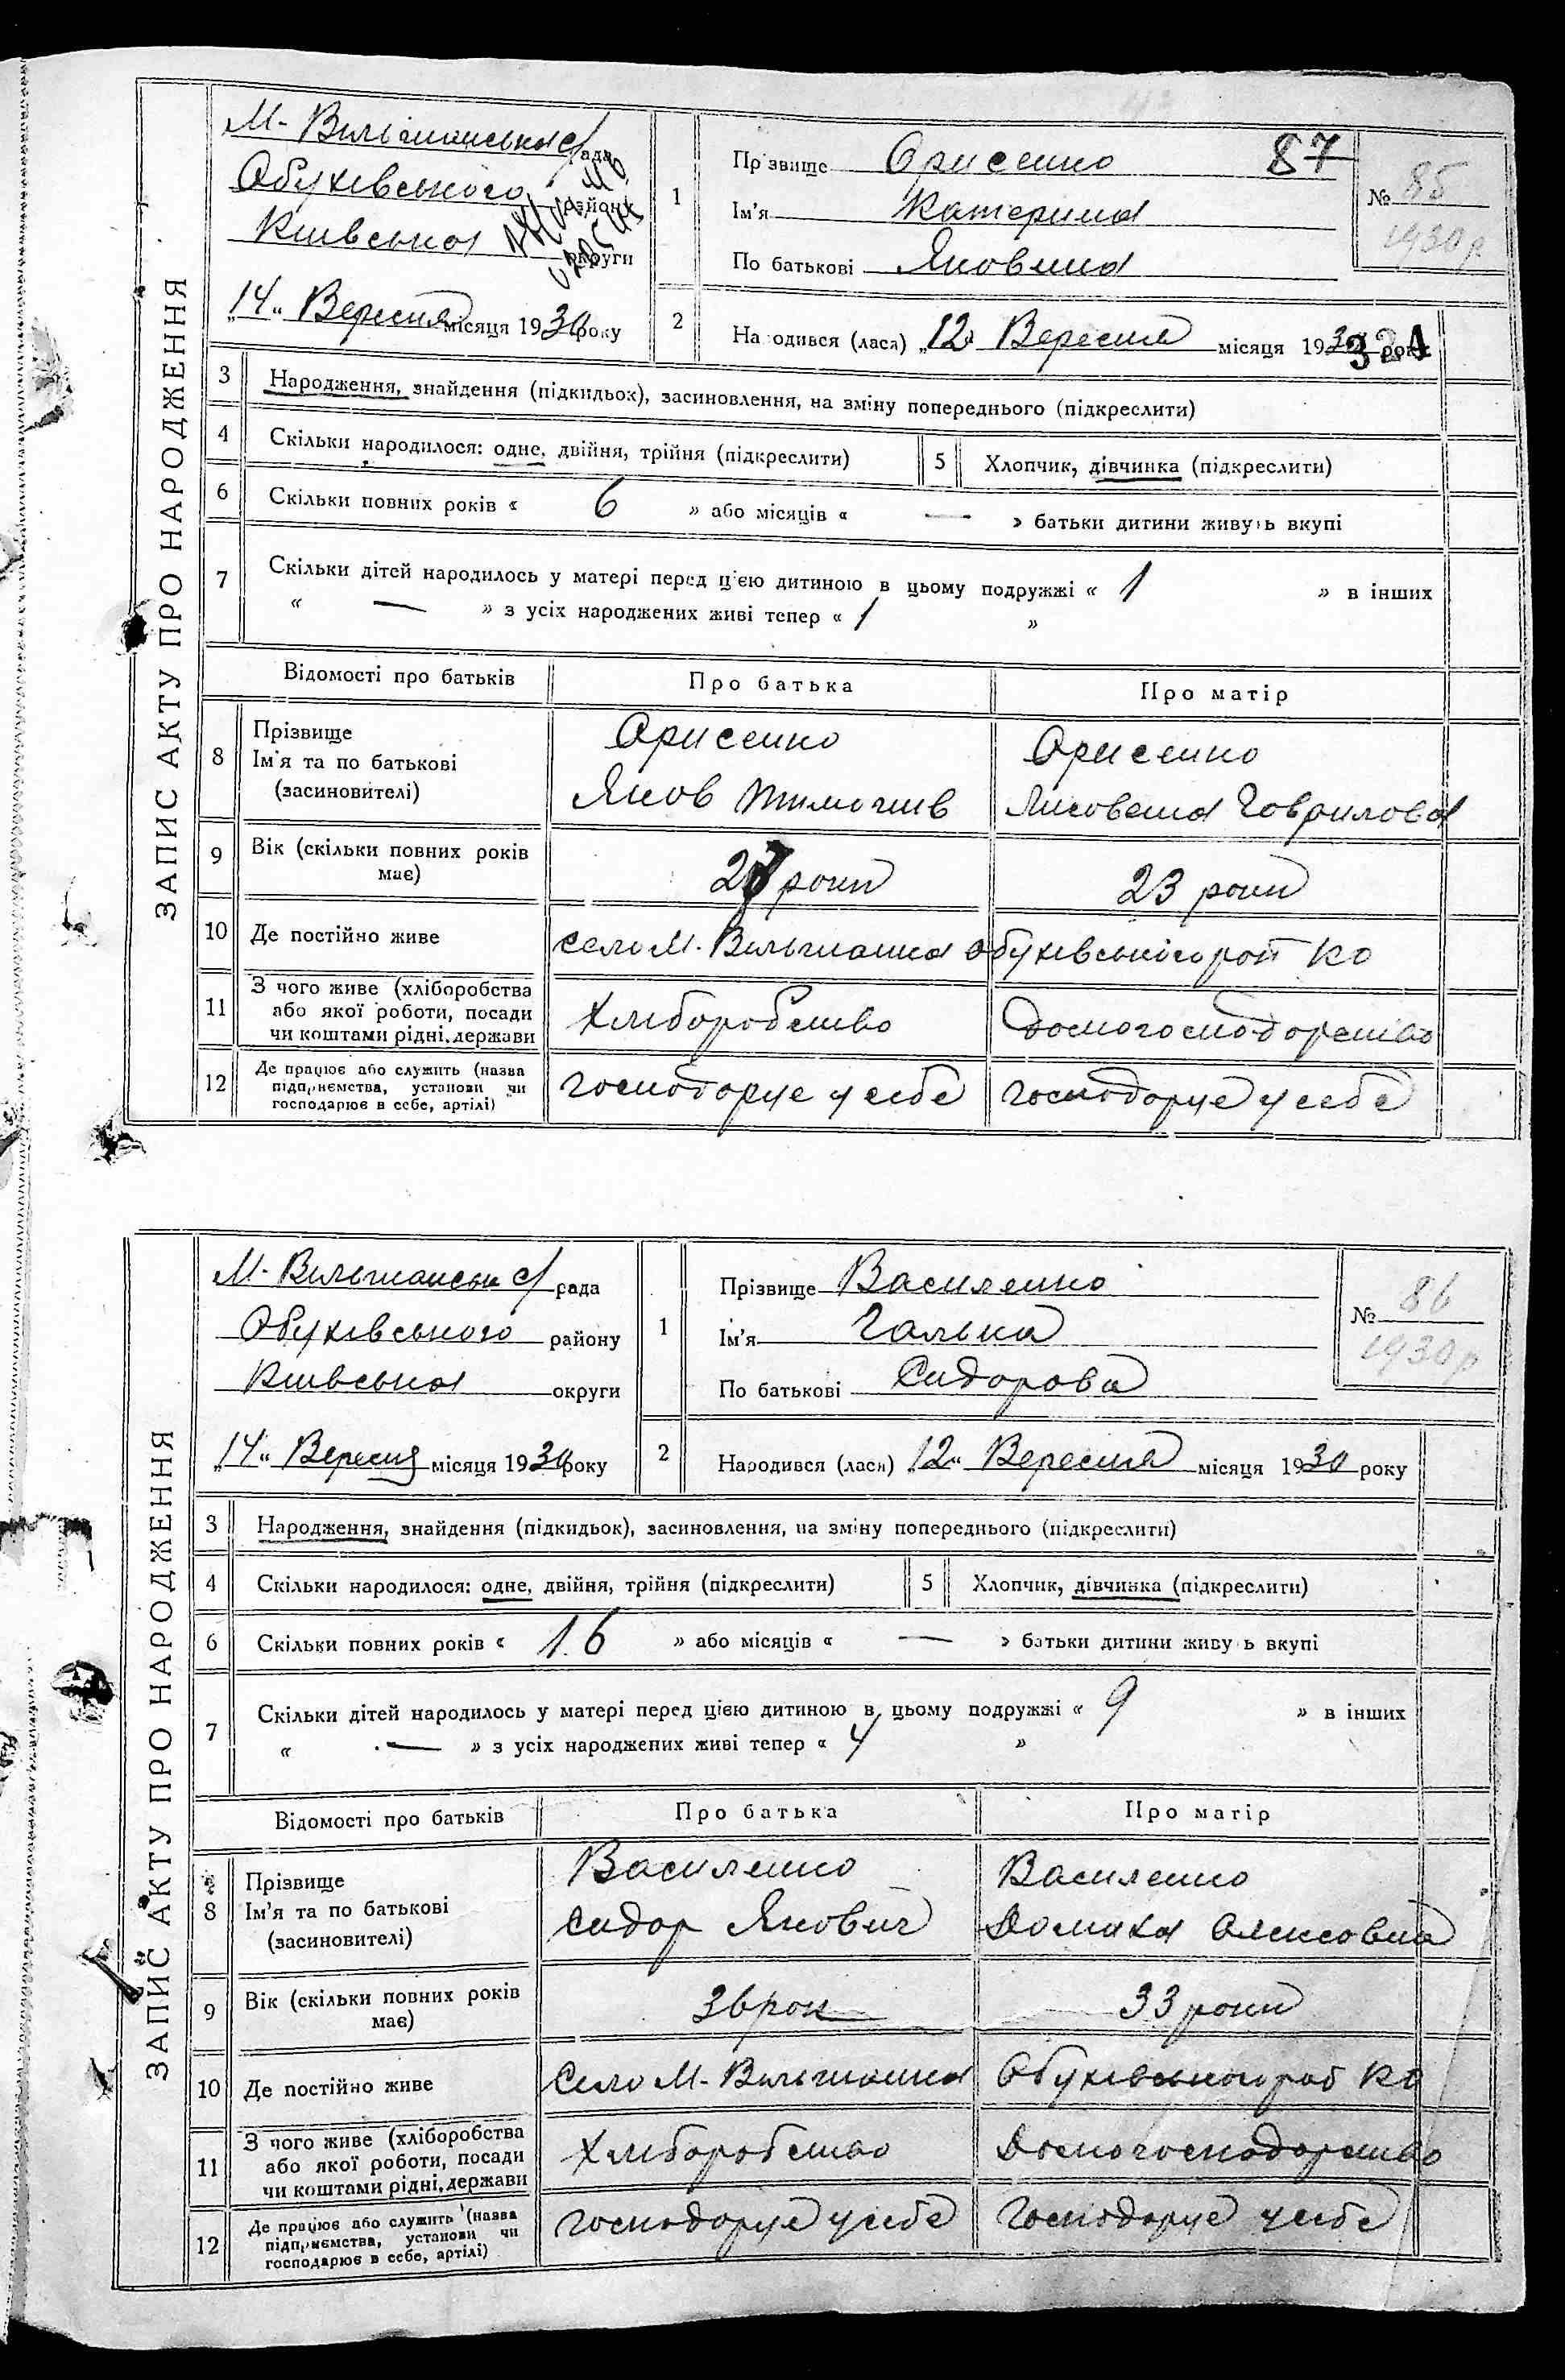 ЗАПИС АКТУ ПРО НАРОДЖЕННЯ
М- Вильшанська с/рада
Обухівського району
Київська округи
„14“ Вересня місяця 1930 року
1
Прізвище Орисенко 87
Ім'я Катерина
По батькові Яковина
№ 85
1930 р
2
Народився (лася) „12“ Вересня місяця 1930 року
324
3 Народження, знайдення (підкидьок), засиновлення, на зміну попереднього (підкреслити)
4 Скільки народилося: одне, двійня, трійня (підкреслити) 5 Хлопчик, дівчинка (підкреслити)
6 Скільки повних років « 6 » або місяців « — » батьки дитини живуть вкупі
7 Скільки дітей народилось у матері перед цією дитиною в цьому подружжі « 1 » в інших
« — » з усіх народжених живі тепер « 1 »
Відомості про батьків Про батька Про матір
8 Прізвище Орисенко Орисенко
Ім'я та по батькові Яков Тимошив Лисовета Говрилова
(засиновителі)
9 Вік (скільки повних років має) 27 роки 23 роки
10 Де постійно живе село М. Вильшанка Обухівського рай КО
11 З чого живе (хліборобства або якої роботи, посади чи коштами рідні, держави Хлиборобство Домогосподорство
12 Де працює або служить (назва підприємства, установи чи господарює в себе, артілі) господорує у себе господорує у себе
ЗАПИС АКТУ ПРО НАРОДЖЕННЯ
М- Вильшанськ с/рада
Обухівського району
Київська округи
„14“ Вересня місяця 1930 року
1
Прізвище Василенко
Ім'я Галька
По батькові Сидорова
№ 86
1930 р
2
Народився (лася) „12“ Вересня місяця 1930 року
3 Народження, знайдення (підкидьок), засиновлення, на зміну попереднього (підкреслити)
4 Скільки народилося: одне, двійня, трійня (підкреслити) 5 Хлопчик, дівчинка (підкреслити)
6 Скільки повних років « 16 » або місяців « — » батьки дитини живуть вкупі
7 Скільки дітей народилось у матері перед цією дитиною в цьому подружжі « 9 » в інших
« — » з усіх народжених живі тепер « 4 »
Відомості про батьків Про батька Про матір
8 Прізвище Василенко Василенко
Ім'я та по батькові Сидор Якович Домаха Олексовна
(засиновителі)
9 Вік (скільки повних років має) 36 рок 33 роки
10 Де постійно живе Село М- Вильшанка Обухівського рай КО
11 З чого живе (хліборобства або якої роботи, посади чи коштами рідні, держави Хлиборобство Домогосподорство
12 Де працює або служить (назва підприємства, установи чи господарює в себе, артілі) господорує у себе господорує у себе